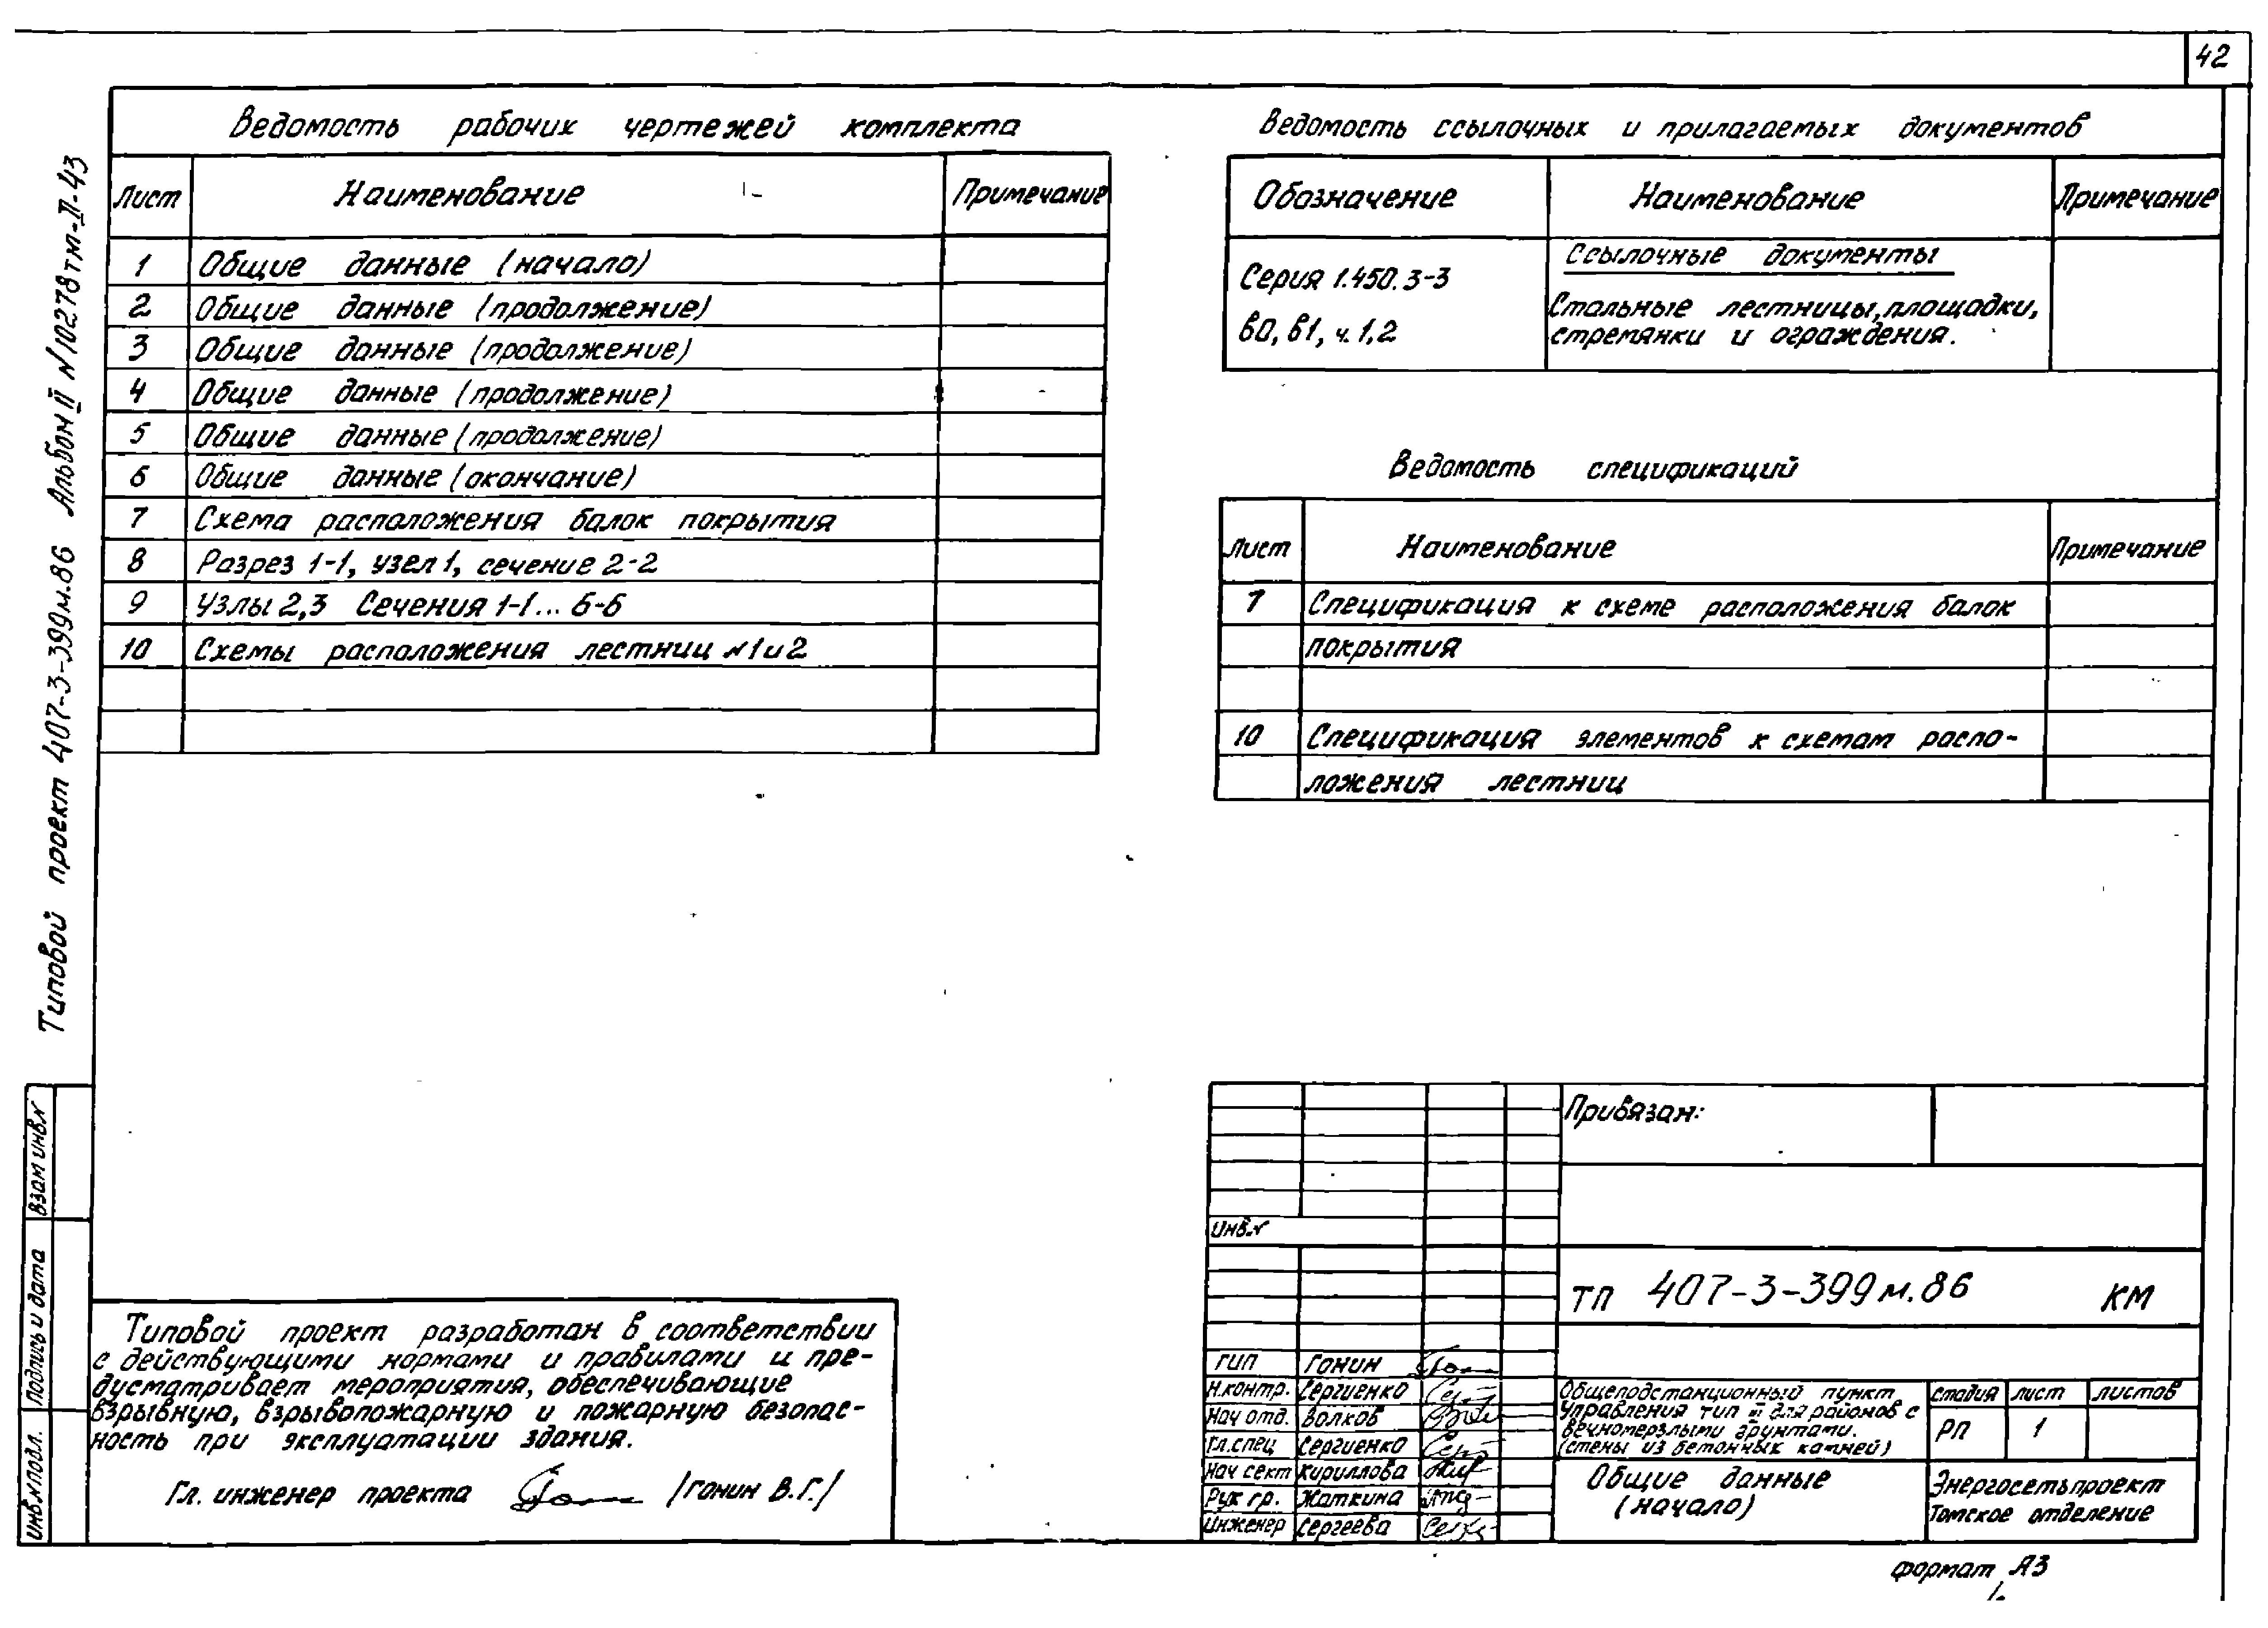 42
Типовой проект 407-3-399м.86 Альбом II №10278тм-II-43
Ведомость рабочих чертежей комплекта
Лист Наименование Примечание
1 Общие данные (начало)
2 Общие данные (продолжение)
3 Общие данные (продолжение)
4 Общие данные (продолжение)
5 Общие данные (продолжение)
6 Общие данные (окончание)
7 Схема расположения балок покрытия
8 Разрез 1-1, узел 1, сечение 2-2
9 Узлы 2,3 Сечения 1-1... 6-6
10 Схемы расположения лестниц №1 и 2
Ведомость ссылочных и прилагаемых документов
Обозначение Наименование Примечание
Ссылочные документы
Серия 1.450.3-3
Стальные лестницы, площадки,
в0, в1, ч.1,2
стремянки и ограждения.
Ведомость спецификаций
Лист Наименование Примечание
7 Спецификация к схеме расположения балок
покрытия
10 Спецификация элементов к схемам распо-
ложения лестниц
Взам инв№
Подпись и дата
Инв.№подл.
Типовой проект разработан в соответствии
с действующими нормами и правилами и пре-
дусматривает мероприятия, обеспечивающие
взрывную, взрывопожарную и пожарную безопас-
ность при эксплуатации здания.
Гл. инженер проекта /Ганин В.Г./
Привязан:
Инв.№
ТП 407-3-399м.86 КМ
ГИП Ганин
Н.контр. Сергиенко
Нач отд. Волков
Гл.спец Сергиенко
Нач сект Кириллова
Рук гр. Жаткина
Инженер Сергеева
Общеподстанционный пункт
управления тип III для районов с
вечномерзлыми грунтами.
(стены из бетонных камней)
стадия лист листов
РП 1
Общие данные
(начало)
Энергосетьпроект
Томское отделение
формат А3